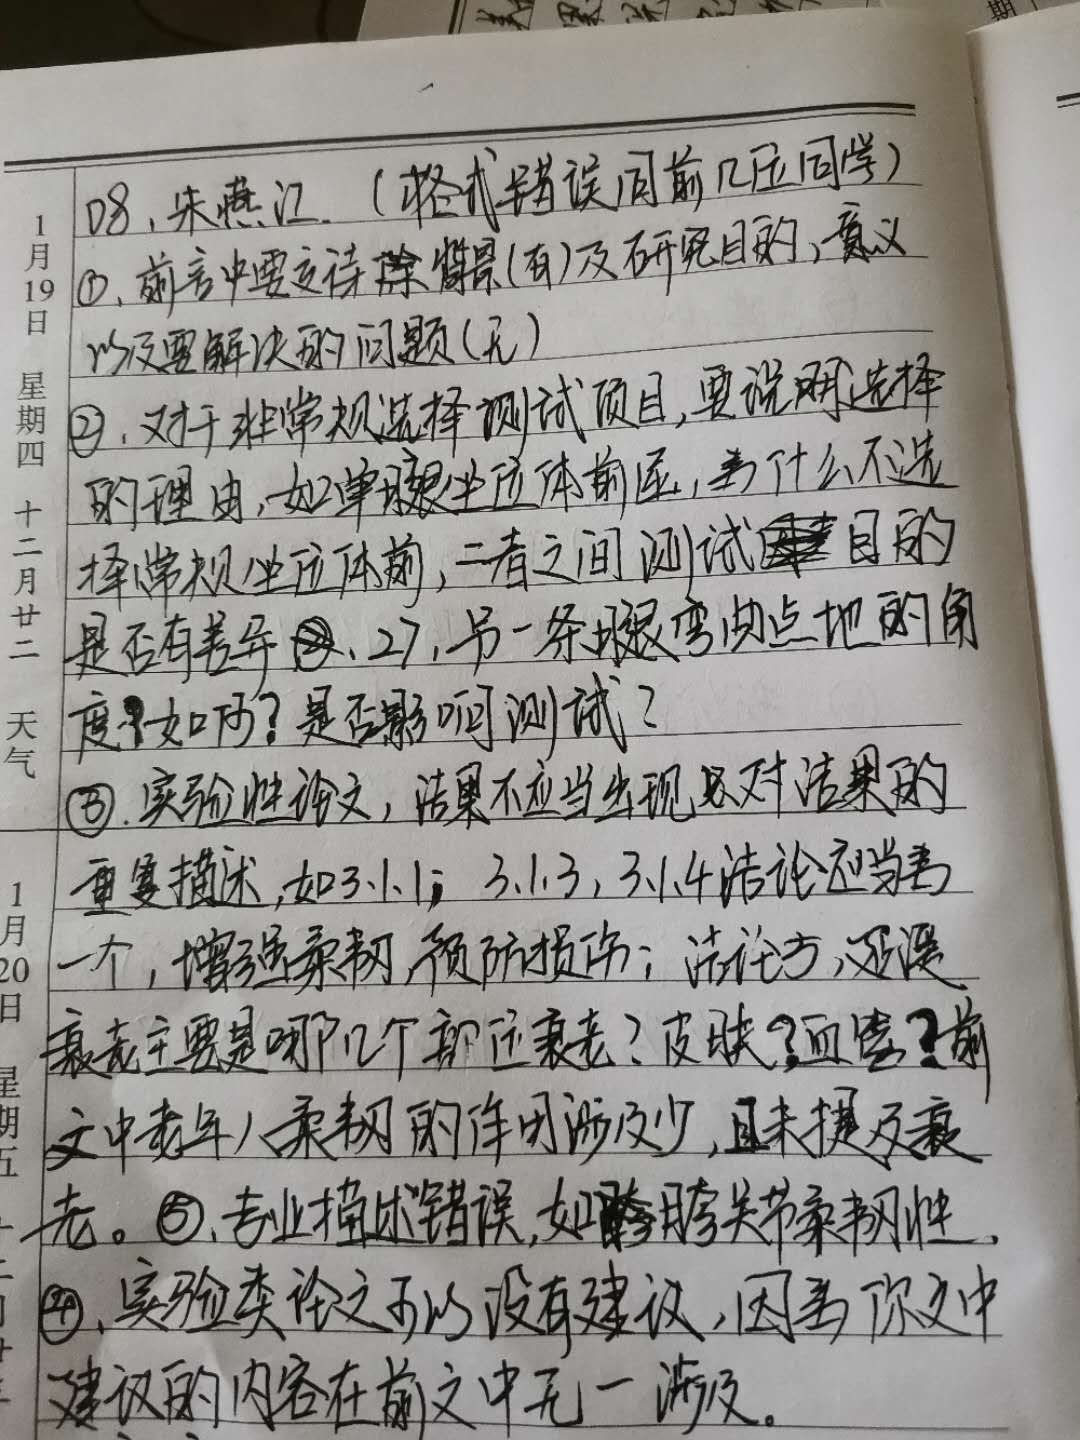 08、朱燕江.（格式错误同前几位同学）
①、前言中要交待除背景(有)及研究目的,意义
以及要解决的问题(无)
②、对于非常规选择测试项目,要说明选择
的理由,如单腿坐位体前屈,为什么不选
择常规坐位体前,二者之间测试目的
是否有差异、27,另一条腿弯曲点地的角
度如何?是否影响测试?
③.实验性论文,结果不应当出现只对结果的
重复描述,如3.1.1; 3.1.3, 3.1.4结论应当为
一个,增强柔韧,预防损伤;结论方,延缓
衰老主要是哪几个部位衰老?皮肤?血管?前
文中老年人柔韧的作用涉及少,且未提及衰
老。⑤、专业描述错误,如胯关节柔韧性.
④、实验类论文可以没有建议,因为你文中
建议的内容在前文中无一涉及。
1月19日 星期四 十二月廿二 天气
1月20日 星期五 十二月廿
期